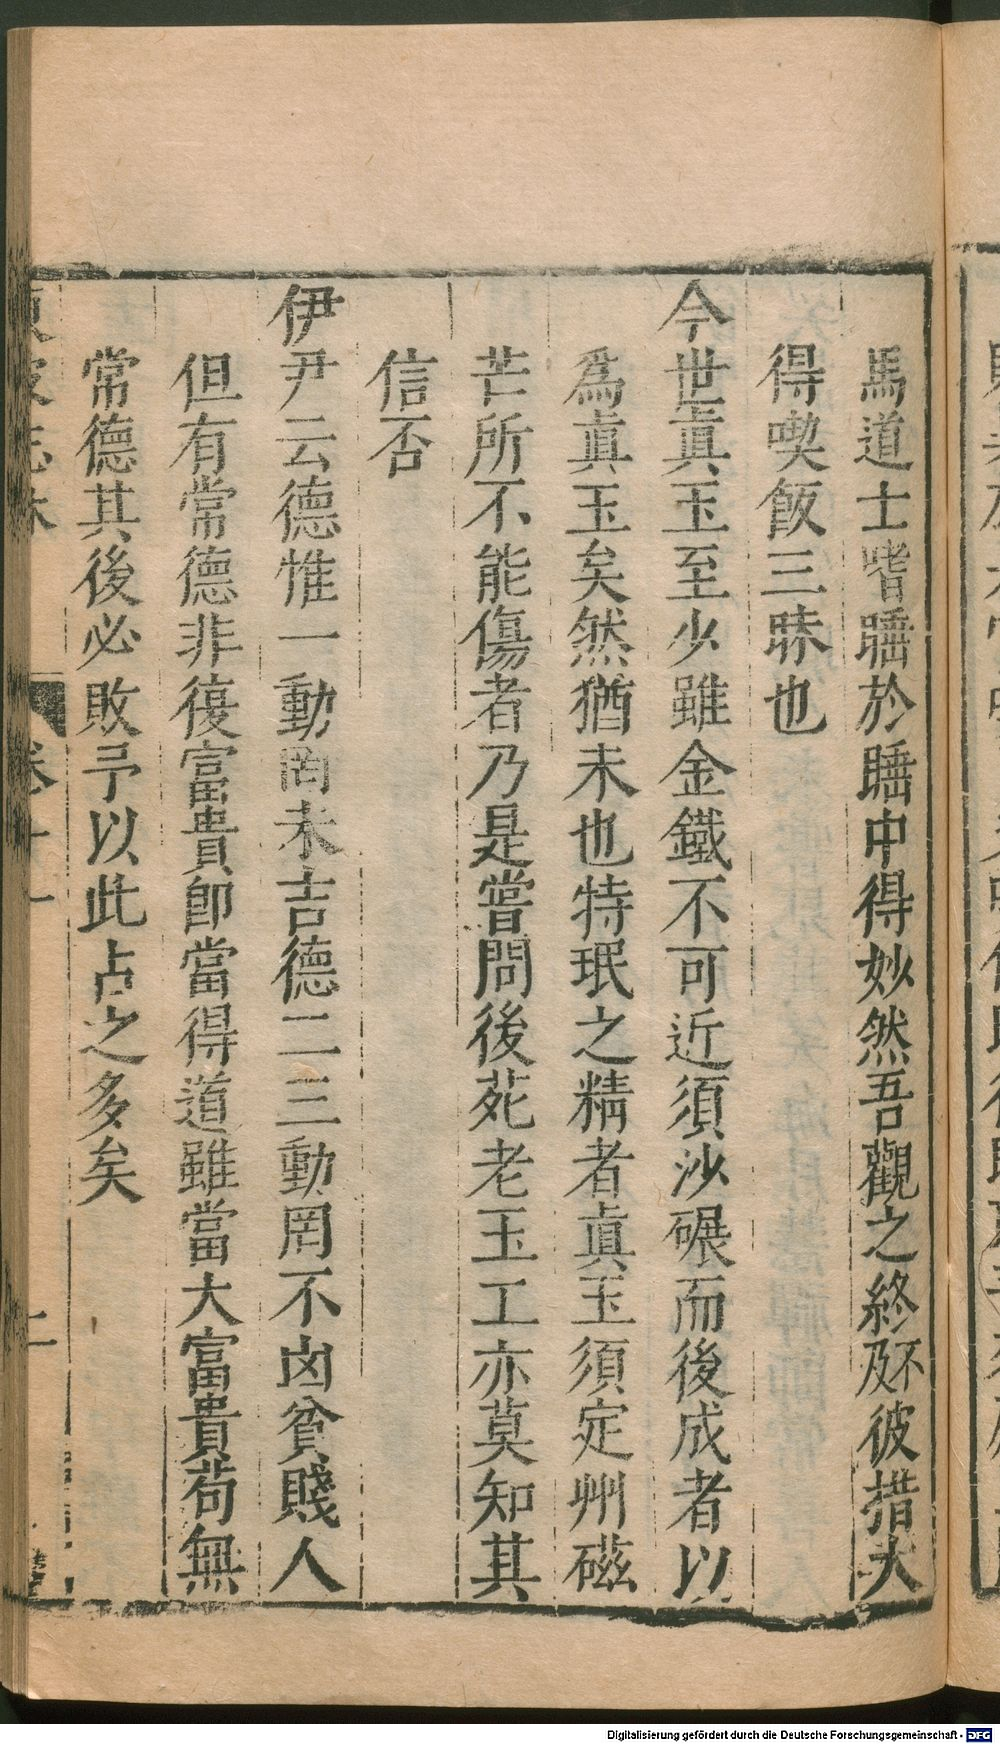 馬道士嗜睡於睡中得妙然吾觀之終不及彼措大
得喫飯三昧也
今世眞玉至少雖金鐵不可近須沙碾而後成者以
爲眞玉矣然猶未也特珉之精者眞玉須定州磁
芒所不能傷者乃是嘗問後苑老玉工亦莫知其
信否
伊尹云德惟一動罔未吉德二三動罔不凶貧賤人
但有常德非復富貴卽當得道雖當大富貴苟無
常德其後必敗予以此占之多矣
東坡志林 卷十一 二
Digitalisierung gefördert durch die Deutsche Forschungsgemeinschaft - DFG